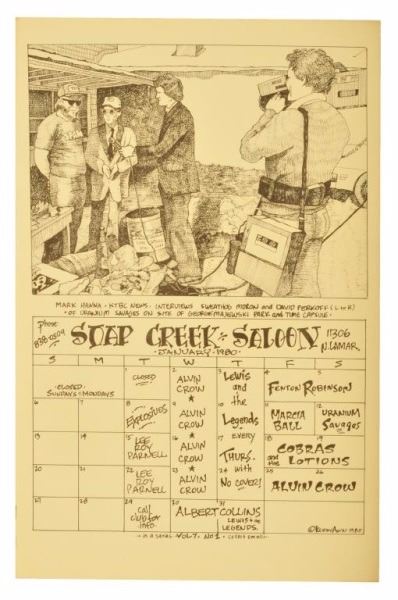 MARK HANNA - KTBC NEWS, INTERVIEWS SWEATHOG MORON and DAVID PERKOFF (L to R)
OF URANIUM SAVAGES ON SITE OF GEORGE MAJEWSKI PARK AND TIME CAPSULE.
Phone
SOAP CREEK SALOON
11306
N. LAMAR
JANUARY • 1980
S M T W T F S
CLOSED:
SUNDAYS & MONDAYS
1
CLOSED
2
ALVIN
CROW
3
Lewis
and
the
4
FENTON ROBINSON
6
7
8
EXPLOSIVES
9
ALVIN
CROW
10
Legends
11
MARCIA
BALL
12
URANIUM
Savages
13
14
15
LEE
ROY
PARNELL
16
ALVIN
CROW
17
EVERY
THURS.
18
19
COBRAS
and the
LOTIONS
20
21
22
LEE
ROY
PARNELL
23
ALVIN
CROW
24
with
No COVER!
25
26
ALVIN CROW
27
28
29
Call
club for
info.
30
31
ALBERT COLLINS
LEWIS & the
LEGENDS.
IN A SERIES VOL 7, NO 1